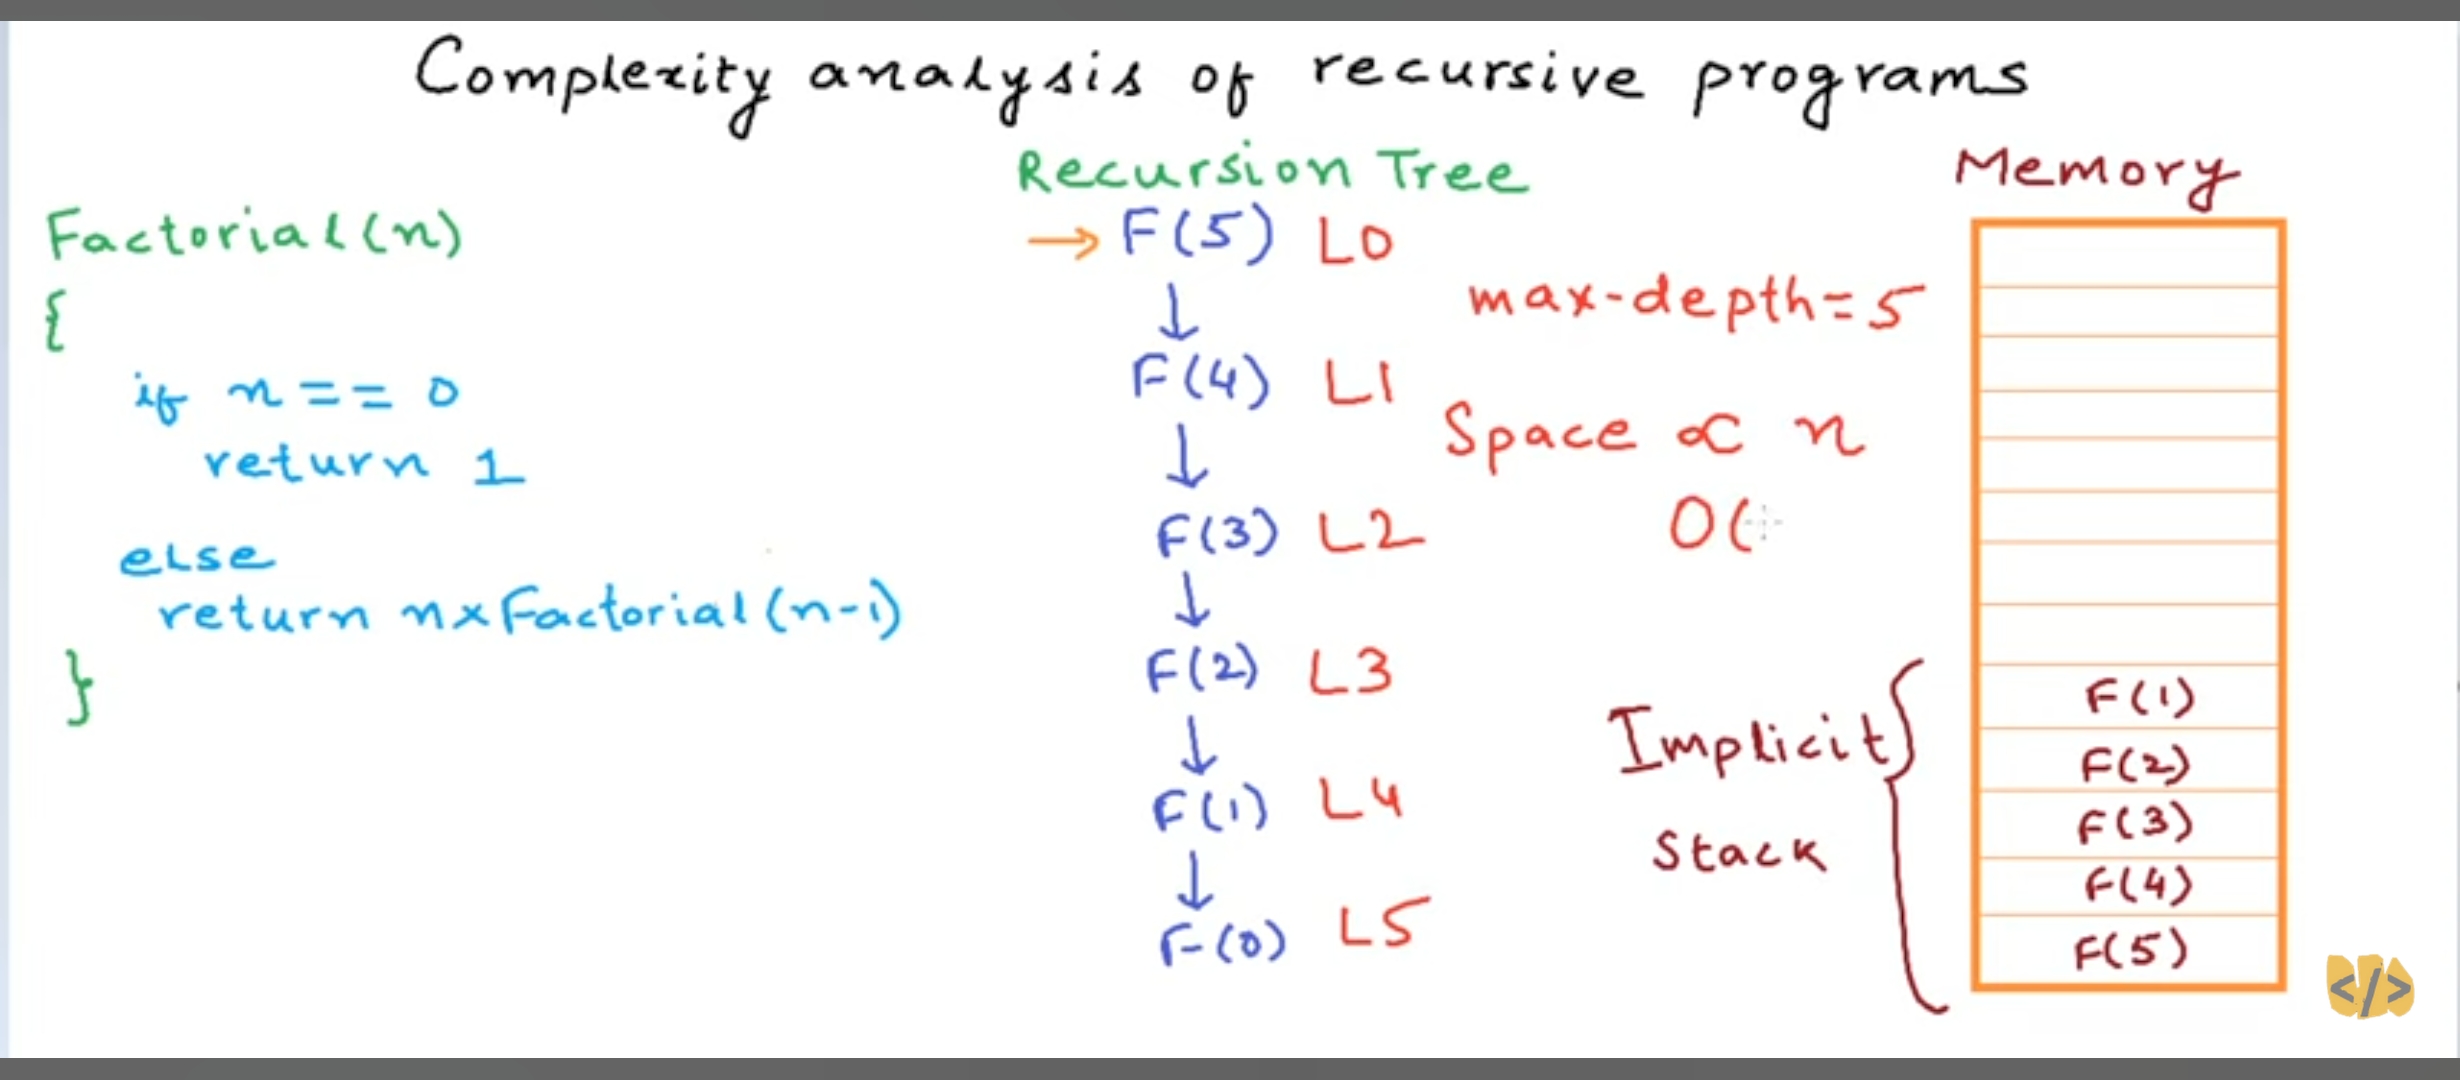 Complexity analysis of recursive programs
Factorial(n)
{
if n == 0
return 1
else
return n x Factorial(n-1)
}
Recursion Tree
→ F(5) L0
↓
F(4) L1
↓
F(3) L2
↓
F(2) L3
↓
F(1) L4
↓
F(0) L5
max-depth = 5
Space ∝ n
O(
Implicit
Stack
{
Memory
F(1)
F(2)
F(3)
F(4)
F(5)
</>